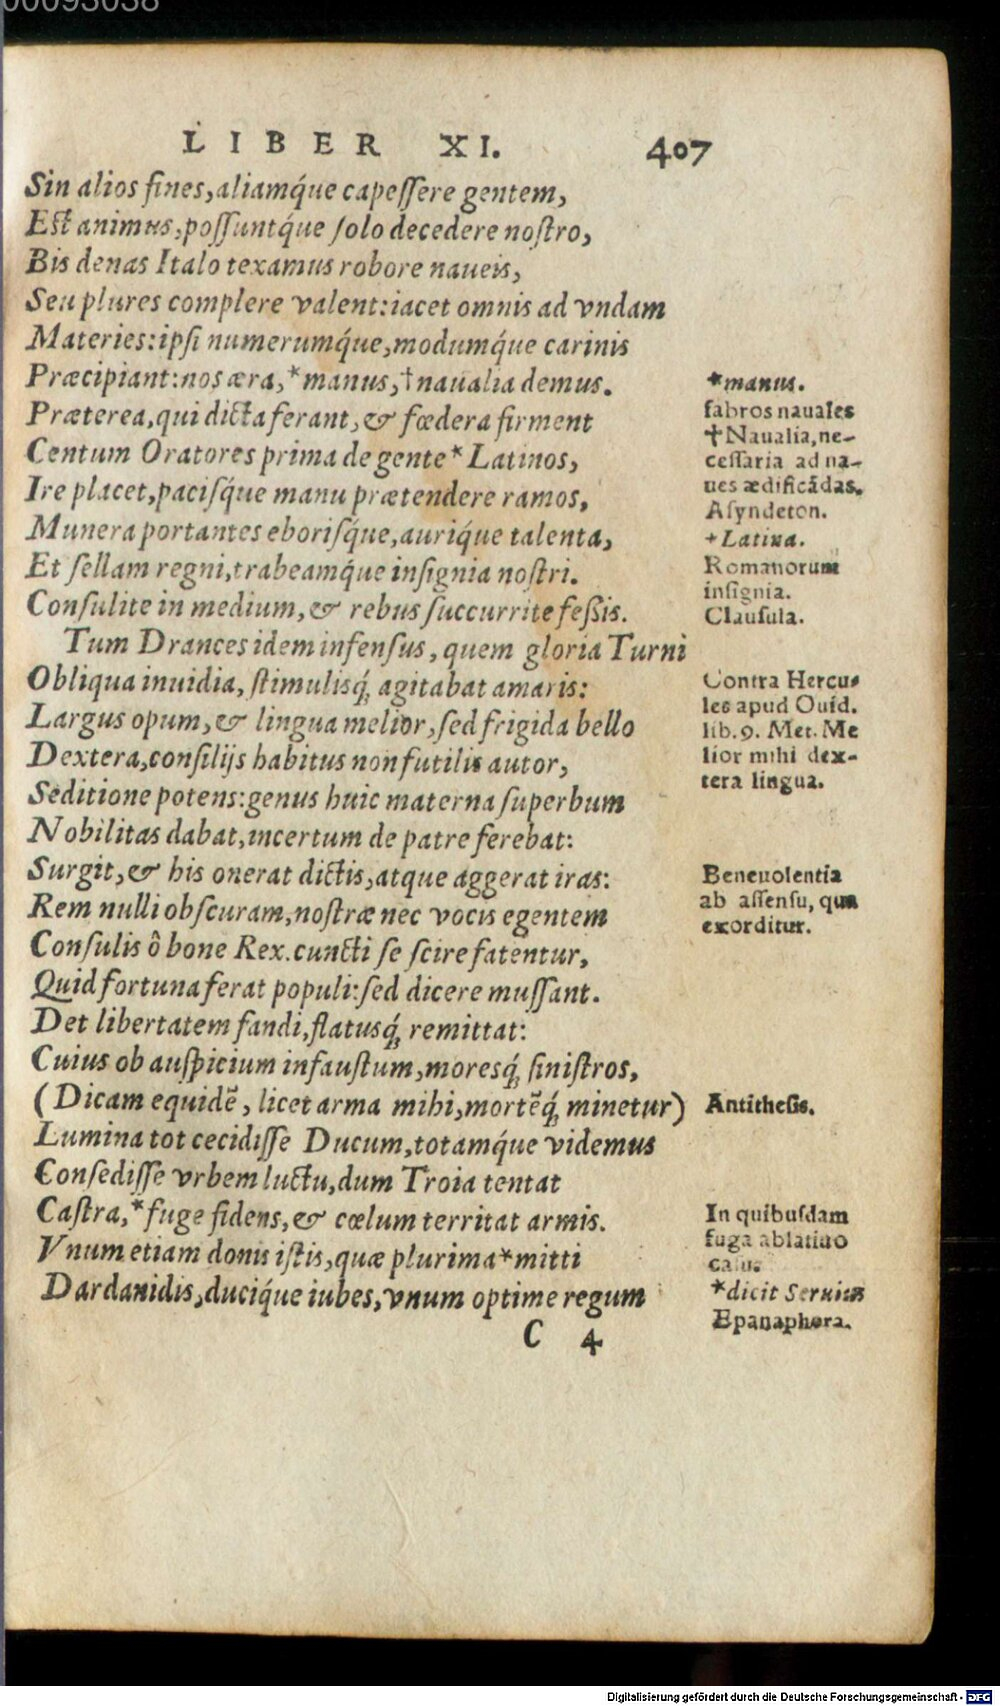 00093038
LIBER XI. 407
Sin alios fines, aliamq́ue capessere gentem,
Est animus, possuntq́ue solo decedere nostro,
Bis denas Italo texamus robore naueis,
Seu plures complere valent: iacet omnis ad vndam
Materies: ipsi numerumq́ue, modumq́ue carinis
Præcipiant: nos æra, *manus, †naualia demus.
Præterea, qui dicta ferant, & fœdera firment
Centum Oratores prima de gente *Latinos,
Ire placet, pacisq́ue manu prætendere ramos,
Munera portantes eborisq́ue, auriq́ue talenta,
Et sellam regni, trabeamq́ue insignia nostri.
Consulite in medium, & rebus succurrite fessis.
Tum Drances idem infensus, quem gloria Turni
Obliqua inuidia, stimulisq́; agitabat amaris:
Largus opum, & lingua melior, sed frigida bello
Dextera, consilijs habitus non futilis autor,
Seditione potens: genus huic materna superbum
Nobilitas dabat, incertum de patre ferebat:
Surgit, & his onerat dictis, atque aggerat iras:
Rem nulli obscuram, nostræ nec vocis egentem
Consulis ô bone Rex. cuncti se scire fatentur,
Quid fortuna ferat populi: sed dicere mussant.
Det libertatem fandi, flatusq́; remittat:
Cuius ob auspicium infaustum, moresq́; sinistros,
(Dicam equidẽ, licet arma mihi, mortẽq́; minetur)
Lumina tot cecidisse Ducum, totamq́ue videmus
Consedisse vrbem luctu, dum Troia tentat
Castra, *fuge fidens, & cœlum territat armis.
Vnum etiam donis istis, quæ plurima *mitti
Dardanidis, duciq́ue iubes, vnum optime regum
C 4
*manus.
fabros nauales
†Naualia, ne-
cessaria ad na-
ues ædificãdas.
Asyndeton.
+Latina.
Romanorum
insignia.
Clausula.
Contra Hercu-
les apud Ouid.
lib. 9. Met. Me
lior mihi dex-
tera lingua.
Beneuolentia
ab assensu, quo
exorditur.
Antithesis.
In quibusdam
fuga ablatiuo
casu.
*dicit Seruius
Epanaphora.
Digitalisierung gefördert durch die Deutsche Forschungsgemeinschaft - DFG